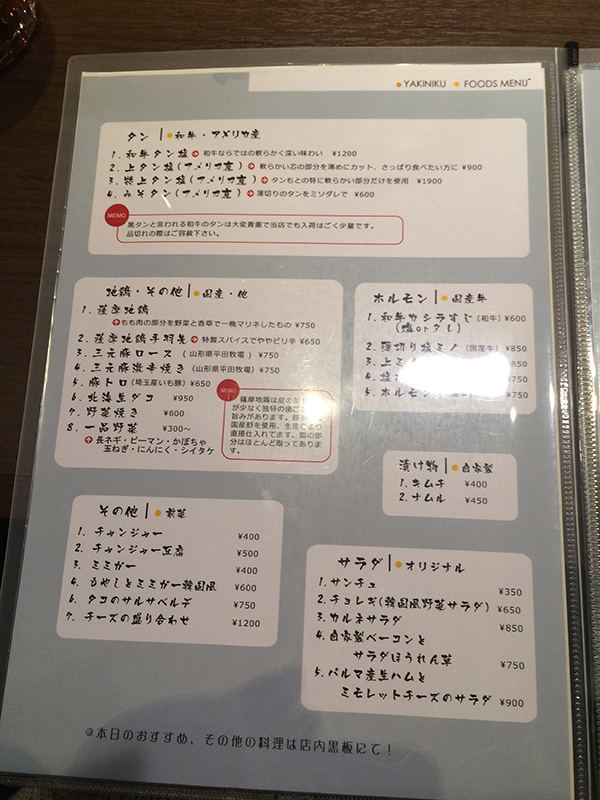 YAKINIKU FOODS MENU
タン 和牛・アメリカ産
1. 和牛タン塩 和牛ならではの軟らかく深い味わい ¥1200
2. 上タン塩(アメリカ産) 軟らかい芯の部分を薄めにカット、さっぱり食べたい方に ¥900
3. 特上タン塩(アメリカ産) タンもとの特に軟らかい部分だけを使用 ¥1900
4. みそタン(アメリカ産) 薄切りのタンをミソダレで ¥600
MEMO
黒タンと言われる和牛のタンは大変貴重で当店でも入荷はごく少量です。
品切れの際はご容赦下さい。
地鶏・その他 国産・他
1. 薩摩地鶏
もも肉の部分を野菜と香草で一晩マリネしたもの ¥750
2. 薩摩地鶏手羽先 特製スパイスでややピリ辛 ¥650
3. 三元豚ロース (山形県平田牧場) ¥750
4. 三元豚激辛焼き (山形県平田牧場) ¥750
5. 豚トロ (埼玉産いも豚) ¥650
6. 北海生ダコ ¥950
7. 野菜焼き ¥600
8. 一品野菜 ¥300〜
長ネギ・ピーマン・かぼちゃ
玉ねぎ・にんにく・シイタケ
MEMO
薩摩地鶏は皮の部
が少なく独特の歯ご
旨みがあります。豚
国産豚を使用、生産
直接仕入れてます。脂の部
分はほとんど取ってありま
す。
ホルモン 国産牛
1. 和牛カシラすじ (和牛) ¥600
(塩orダレ)
2. 薄切り塩ミノ (国産牛) ¥850
3. 上ミ ¥850
4. 塩
5. ホルモン
漬け物 自家製
1. キムチ ¥400
2. ナムル ¥450
その他 前菜
1. チャンジャー ¥400
2. チャンジャー豆腐 ¥500
3. ミミガー ¥400
4. もやしとミミガー韓国風 ¥600
6. タコのサルサベルデ ¥750
7. チーズの盛り合わせ ¥1200
サラダ オリジナル
1. サンチュ ¥350
2. チョレギ(韓国風野菜サラダ) ¥650
3. カルネサラダ ¥850
4. 自家製ベーコンと
サラダほうれん草 ¥750
5. パルマ産生ハムと
ミモレットチーズのサラダ ¥900
本日のおすすめ、その他の料理は店内黒板にて！